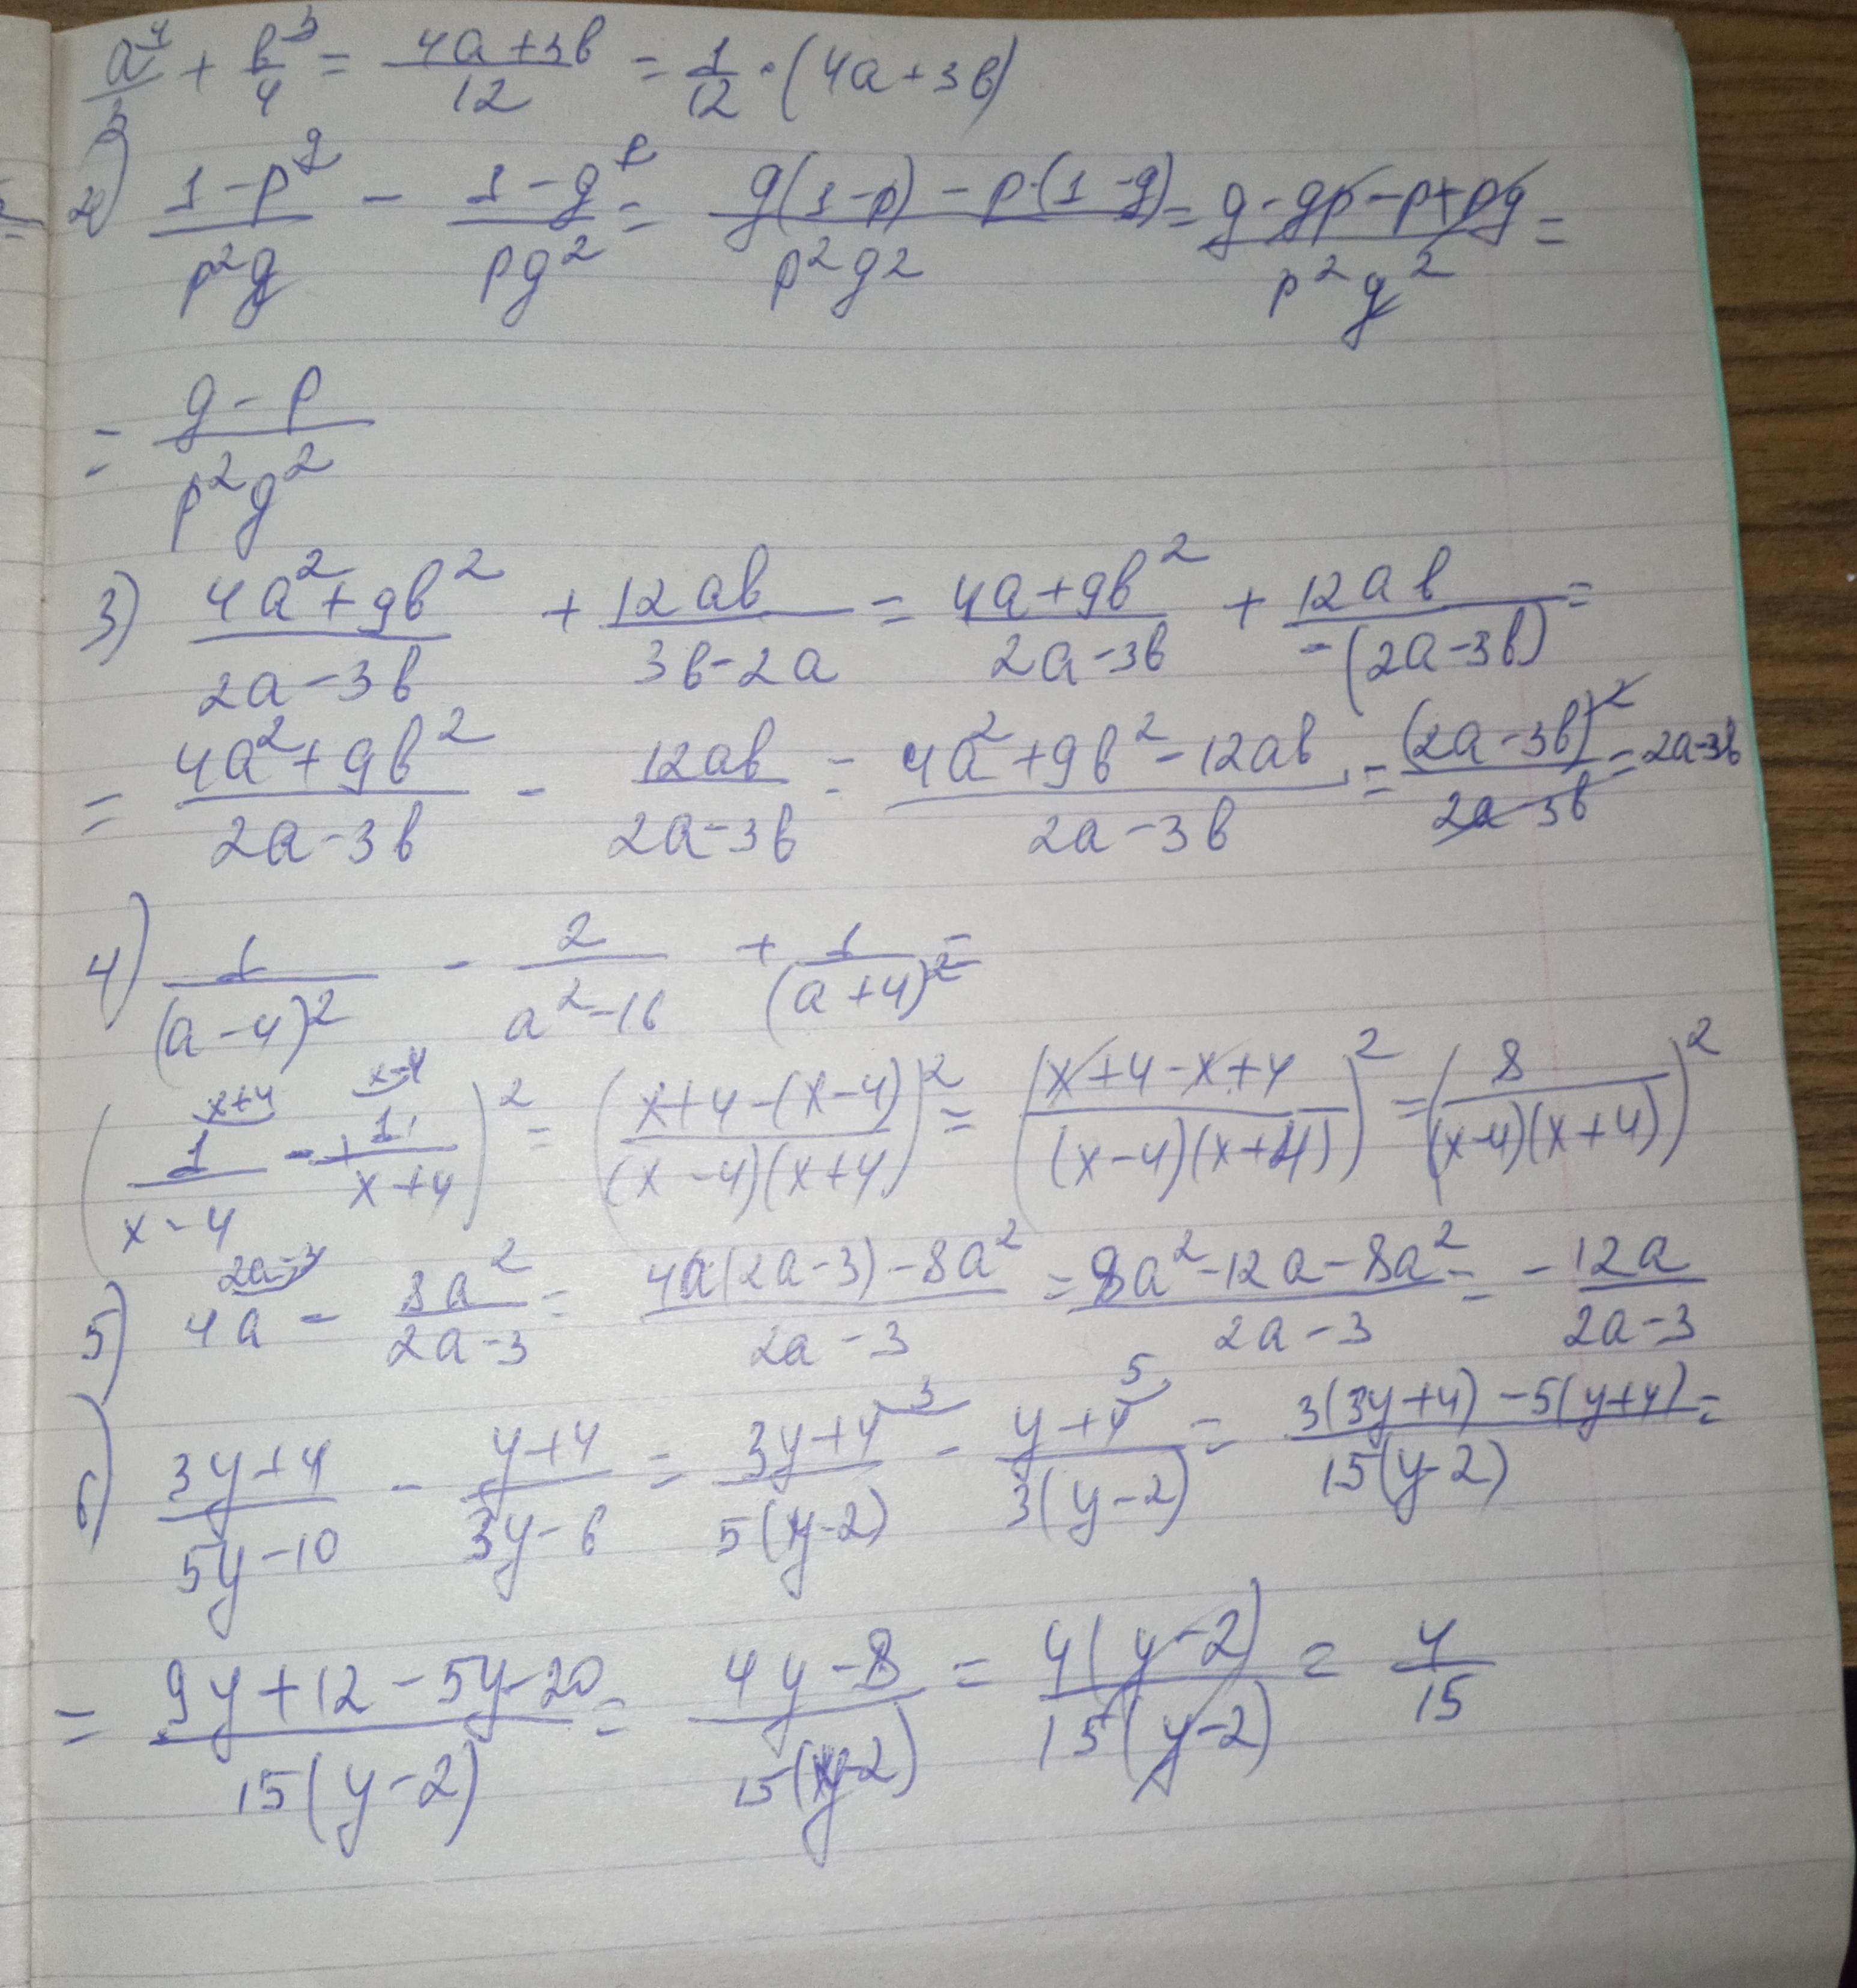 a⁴/3 + в³/4 = 4a+3в/12 = 1/12 · (4a+3в)
2) 1-p^g/p²g - 1-g^p/pg² = g(1-p)-p·(1-g)/p²g² = g-gp-p+pg/p²g² =
= g-p/p²g²
3) 4a²+9в²/2a-3в + 12aв/3в-2a = 4a+9в²/2a-3в + 12aв/-(2a-3в) =
= 4a²+9в²/2a-3в - 12aв/2a-3в = 4a²+9в²-12aв/2a-3в = (2a-3в)²/2a-3в = 2a-3в
4) 1/(a-4)² - 2/a²-16 + 1/(a+4)² =
(1^x+4/x-4 - 1^x-4/x+4)² = (x+4-(x-4)/(x-4)(x+4))² = (x+4-x+4/(x-4)(x+4))² = (8/(x-4)(x+4))²
5) 4a^2a-3 - 8a²/2a-3 = 4a(2a-3)-8a²/2a-3 = 8a²-12a-8a²/2a-3 = - 12a/2a-3
6) 3y+4/5y-10 - y+4/3y-6 = 3y+4^3/5(y-2) - y+4^5/3(y-2) = 3(3y+4)-5(y+4)/15(y-2) =
= 9y+12-5y-20/15(y-2) = 4y-8/15(y-2) = 4(y-2)/15(y-2) = 4/15